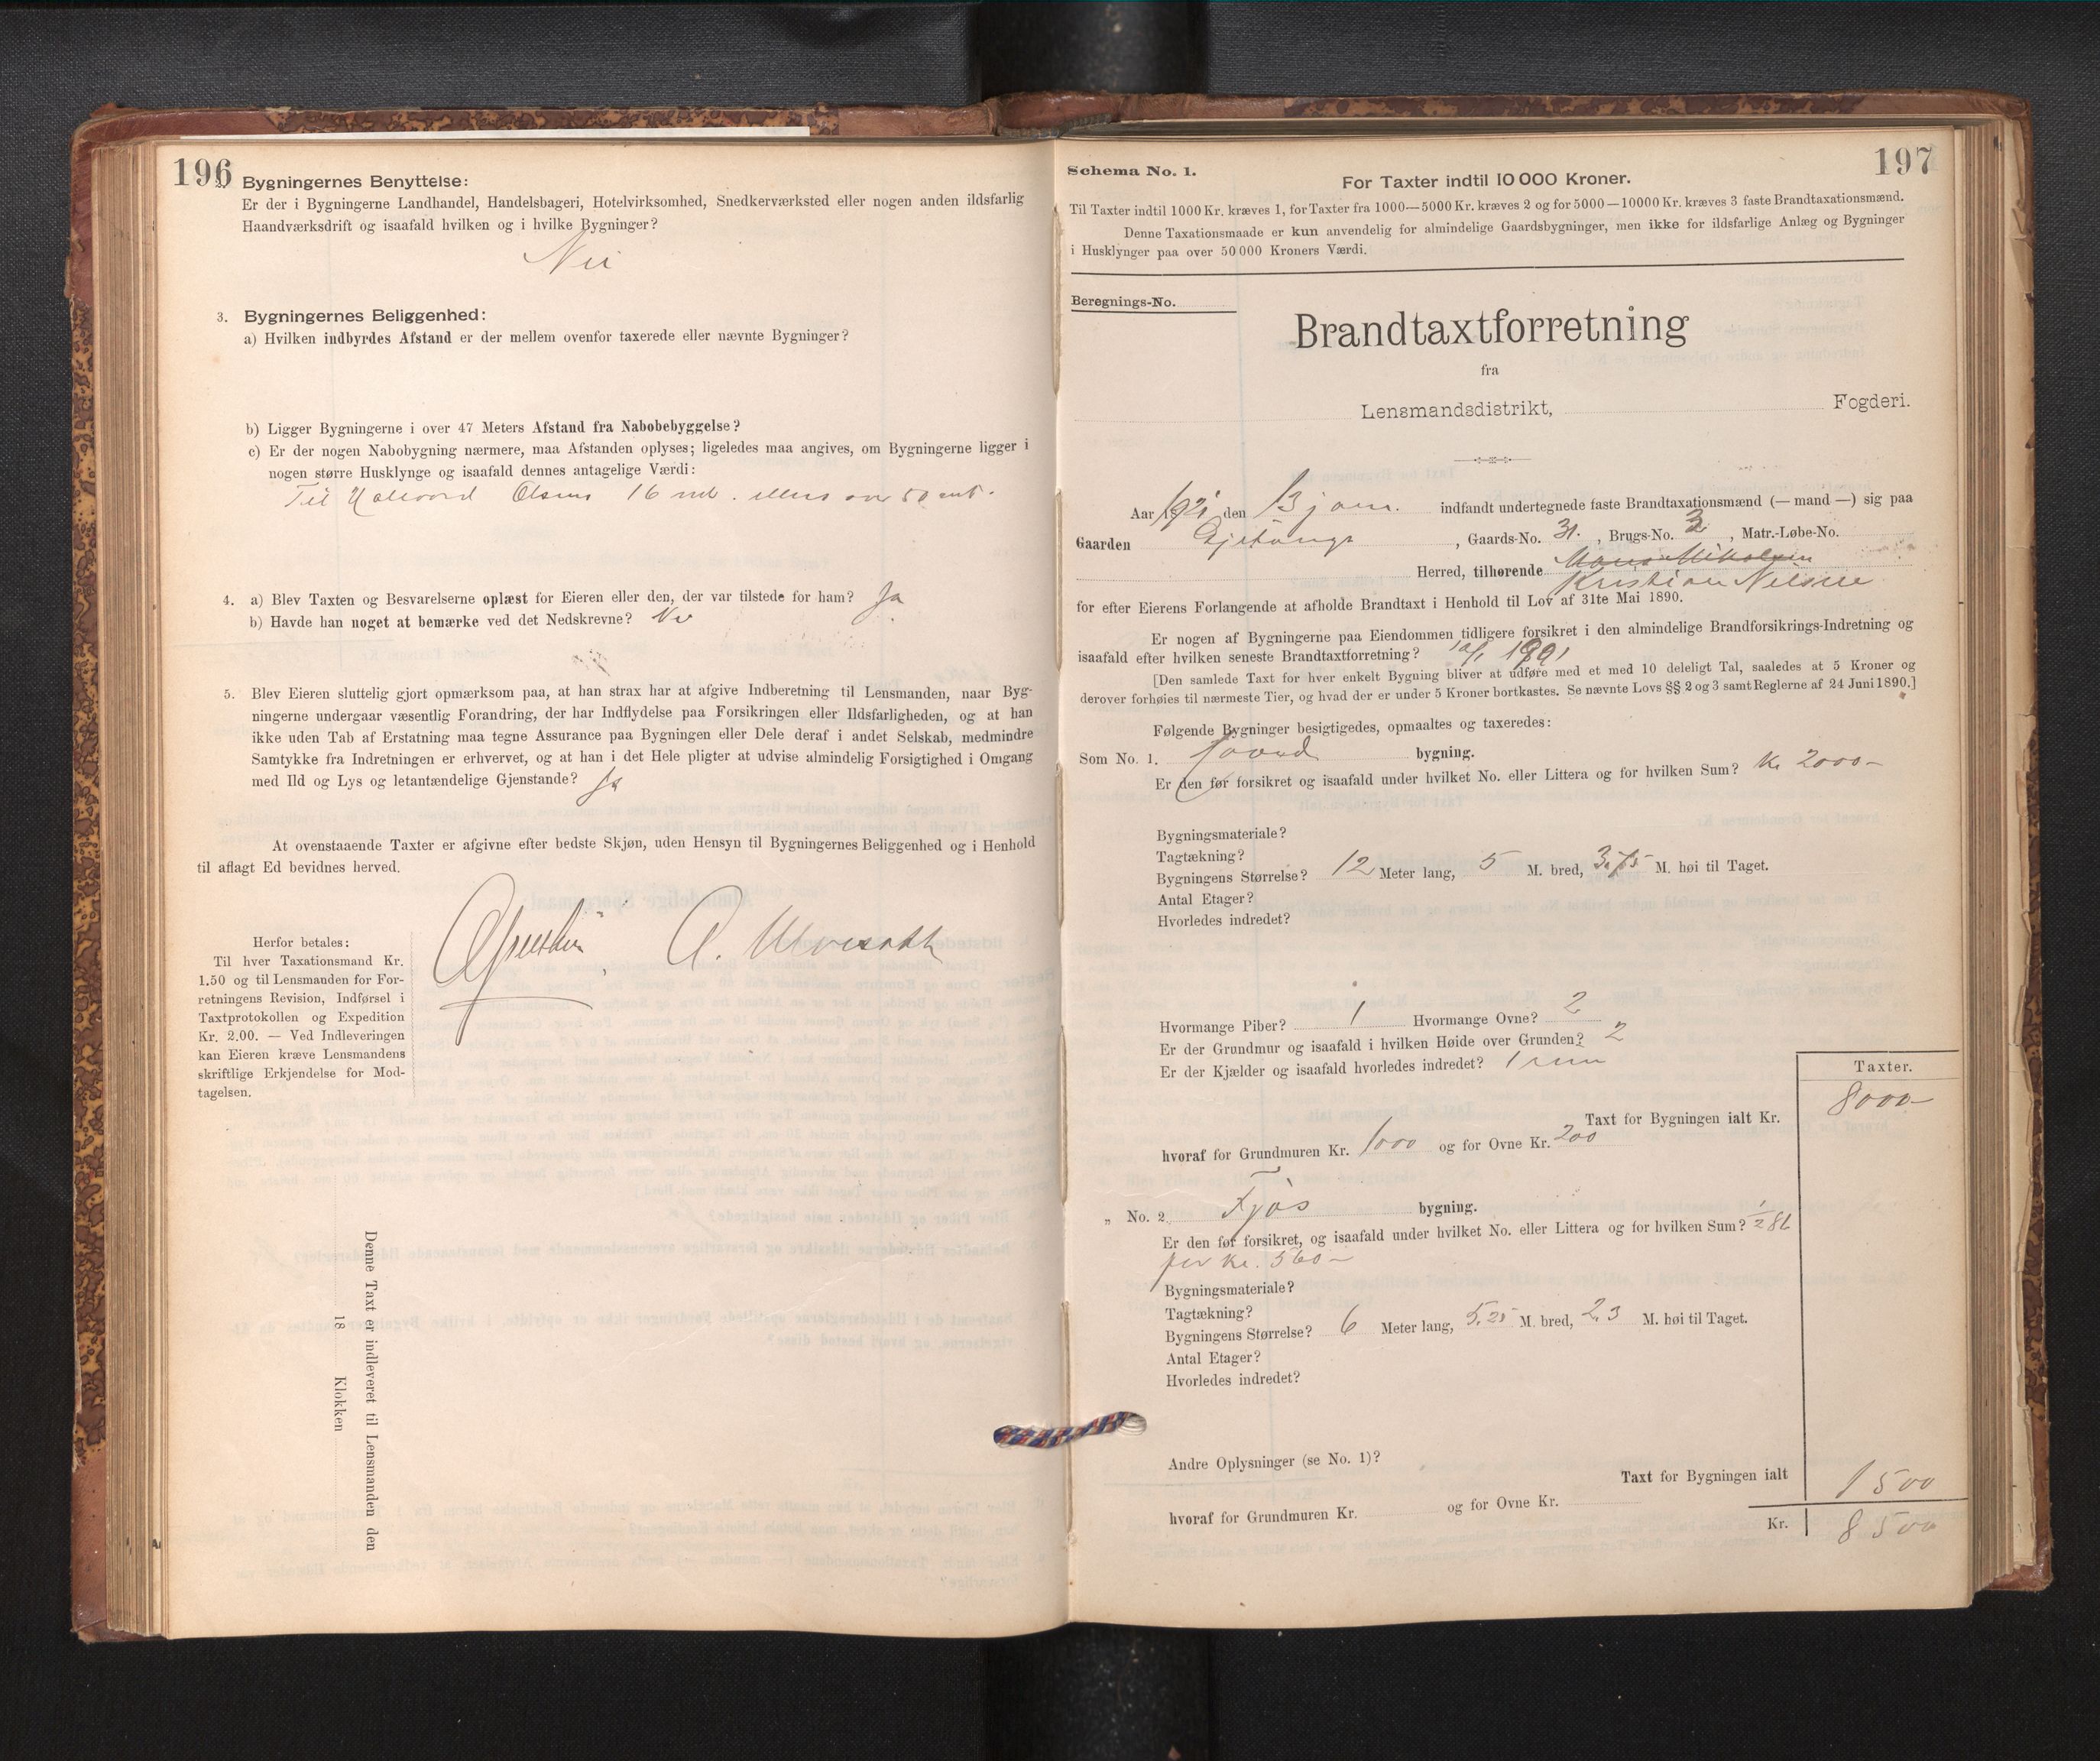 196
Bygningernes Benyttelse:
Er der i Bygningerne Landhandel, Handelsbageri, Hotelvirksomhed, Snedkerværksted eller nogen anden ildsfarlig
Haandværksdrift og isaafald hvilken og i hvilke Bygninger?
Nei
3. Bygningernes Beliggenhed:
a) Hvilken indbyrdes Afstand er der mellem ovenfor taxerede eller nævnte Bygninger?
b) Ligger Bygningerne i over 47 Meters Afstand fra Nabobebyggelse?
c) Er der nogen Nabobygning nærmere, maa Afstanden oplyses; ligeledes maa angives, om Bygningerne ligger i
nogen større Husklynge og isaafald dennes antagelige Værdi:
Til Halvord Olsens 16 mt. ellers over 50 mt.
4. a) Blev Taxten og Besvarelserne oplæst for Eieren eller den, der var tilstede for ham? Ja
b) Havde han noget at bemærke ved det Nedskrevne? Nei
5. Blev Eieren sluttelig gjort opmærksom paa, at han strax har at afgive Indberetning til Lensmanden, naar Byg-
ningerne undergaar væsentlig Forandring, der har Indflydelse paa Forsikringen eller Ildsfarligheden, og at han
ikke uden Tab af Erstatning maa tegne Assurance paa Bygningen eller Dele deraf i andet Selskab, medmindre
Samtykke fra Indretningen er erhvervet, og at han i det Hele pligter at udvise almindelig Forsigtighed i Omgang
med Ild og Lys og letantændelige Gjenstande? Ja
At ovenstaaende Taxter er afgivne efter bedste Skjøn, uden Hensyn til Bygningernes Beliggenhed og i Henhold
til aflagt Ed bevidnes herved.
Herfor betales:
Til hver Taxationsmand Kr.
1.50 og til Lensmanden for For-
retningens Revision, Indførsel i
Taxtprotokollen og Expedition
Kr. 2.00. — Ved Indleveringen
kan Eieren kræve Lensmandens
skriftlige Erkjendelse for Mod-
tagelsen.
Denne Taxt er indleveret til Lensmanden den
18 Klokken
197
Schema No. 1.
For Taxter indtil 10 000 Kroner.
Til Taxter indtil 1000 Kr. kræves 1, for Taxter fra 1000—5000 Kr. kræves 2 og for 5000—10000 Kr. kræves 3 faste Brandtaxationsmænd.
Denne Taxationsmaade er kun anvendelig for almindelige Gaardsbygninger, men ikke for ildsfarlige Anlæg og Bygninger
i Husklynger paa over 50 000 Kroners Værdi.
Beregnings-No.
Brandtaxtforretning
fra
Lensmandsdistrikt, Fogderi.
Aar 1921 den 13 jan. indfandt undertegnede faste Brandtaxationsmænd (— mand —) sig paa
Gaarden , Gaards-No. 31. , Brugs-No. 3 , Matr.-Løbe-No.
Herred, tilhørende
Kristian Nilsen
for efter Eierens Forlangende at afholde Brandtaxt i Henhold til Lov af 31te Mai 1890.
Er nogen af Bygningerne paa Eiendommen tidligere forsikret i den almindelige Brandforsikrings-Indretning og
isaafald efter hvilken seneste Brandtaxtforretning?
[Den samlede Taxt for hver enkelt Bygning bliver at udføre med et med 10 deleligt Tal, saaledes at 5 Kroner og
derover forhøies til nærmeste Tier, og hvad der er under 5 Kroner bortkastes. Se nævnte Lovs §§ 2 og 3 samt Reglerne af 24 Juni 1890.]
Følgende Bygninger besigtigedes, opmaaltes og taxeredes:
Som No. 1. bygning.
Er den før forsikret og isaafald under hvilket No. eller Littera og for hvilken Sum? Kr 2000-
Bygningsmateriale?
Tagtækning?
Bygningens Størrelse? 12 Meter lang, 5 M. bred, 3.75 M. høi til Taget.
Antal Etager?
Hvorledes indredet?
Hvormange Piber? 1 Hvormange Ovne? 2
Er der Grundmur og isaafald i hvilken Høide over Grunden? 2
Er der Kjælder og isaafald hvorledes indredet? 1 rum
Taxter.
Taxt for Bygningen ialt Kr. 8000-
hvoraf for Grundmuren Kr. 1000 og for Ovne Kr. 200
„ No. 2 Fjøs bygning.
Er den før forsikret, og isaafald under hvilket No. eller Littera og for hvilken Sum?
for Kr. 560-
Bygningsmateriale?
Tagtækning?
Bygningens Størrelse? 6 Meter lang, 5.25 M. bred, 2.3 M. høi til Taget.
Antal Etager?
Hvorledes indredet?
Andre Oplysninger (se No. 1)?
Taxt for Bygningen ialt 1500
hvoraf for Grundmuren Kr. og for Ovne Kr.
Kr. 8500